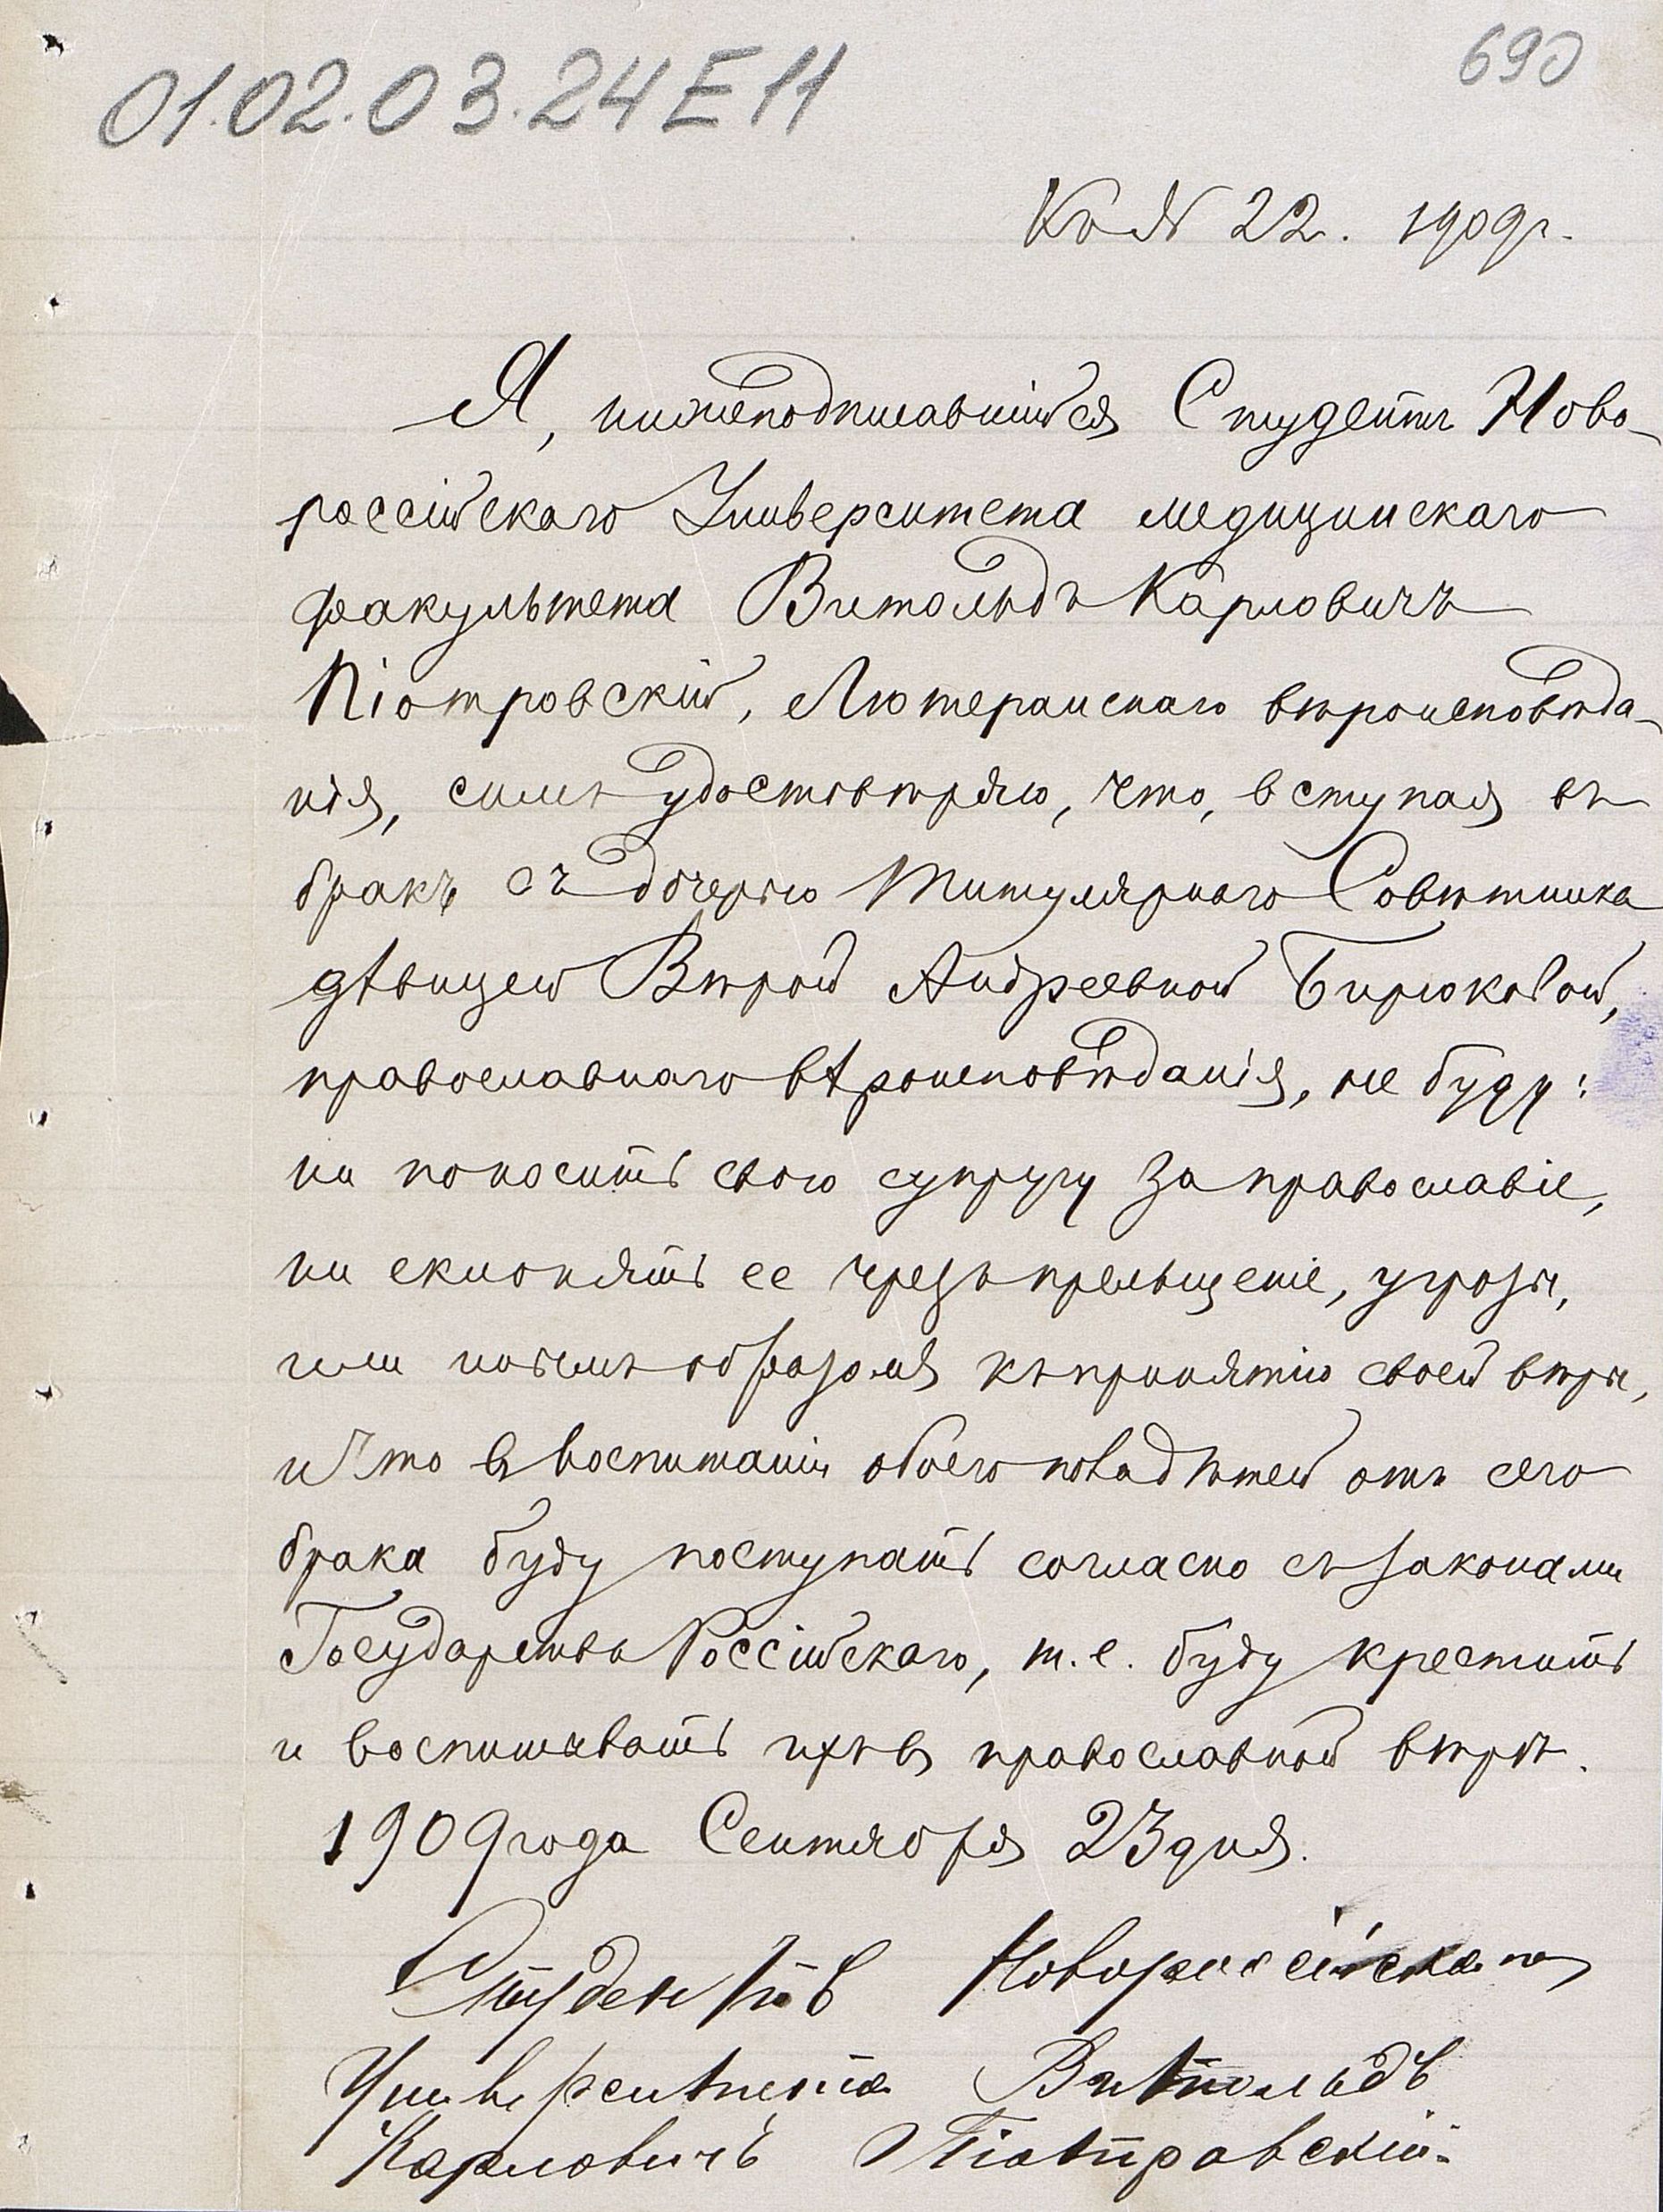 01.02.03.24E11
690
Къ № 22. 1909 г.
Я, нижеподписавшійся Студентъ Ново-
россійскаго Университета медицинскаго
факультета Витольдъ Карловичъ
Піотровскій, Лютеранскаго вѣроисповѣда-
нія, симъ удостовѣряю, что, вступая въ
бракъ съ дочерью Титулярнаго Совѣтника
дѣвицей Вѣрой Андреевной Бирюковой,
православнаго вѣроисповѣданія, не буду:
ни поносить свою супругу за православіе,
ни склонять ее чрезъ прельщеніе, угрозы,
или инымъ образомъ къ принятію своей вѣры,
и что въ воспитаніи обоего пола дѣтей отъ сего
брака буду поступать согласно съ законами
Государства Россійскаго, т.е. буду крестить
и воспитывать ихъ въ православной вѣрѣ.
1909 года Сентября 23 дня.
Студентъ Новороссійскаго
Университета Витольдъ
Карловичъ Піотровскій.